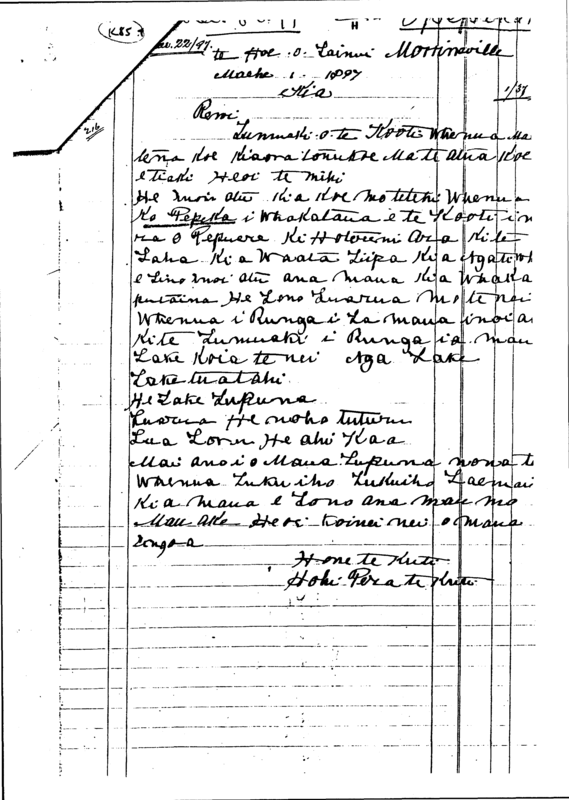 K85
Mar. 22/97
te Hoe o Tainui Morrinsville
Maehe 1 1897
1/37
Kia
216
Remi
Tumuaki o te Kooti Whenua Ma
tena Koe Kiaora tonu Koe Ma te Atua Koe
e tiaki Heoi te mihi
He Inoi atu Kia Koe mo tetehi Whenua
Ko Pepeka i Whakataua e te Kooti i n
ra o Pepuere Ki Hotoruni Ara Ki te
Taha Ki a Waata Tiipa Kia Ngati Wh
e Tino Inoi atu ana Maua Kia Whaka
putaina He Tono Tuarua Mo te nei
Whenua i Runga i Ta Maua inoi a
Ki te Tumuaki i Runga i a mau
Take Koia te nei Nga Take
Take tuatahi
He Take Tupuna
Tuarua He noho tuturu
Tua Toru He ahi Kaa
Mai ano i o Maua Tupuna nona te
Whenua Tuku iho Tukuiho Tae mai
Kia Maua e Tono ana Mau mo
Mau ake Heoi Koinei nei o Maua
Hone te Kuti
Hohi Pera te Kuti